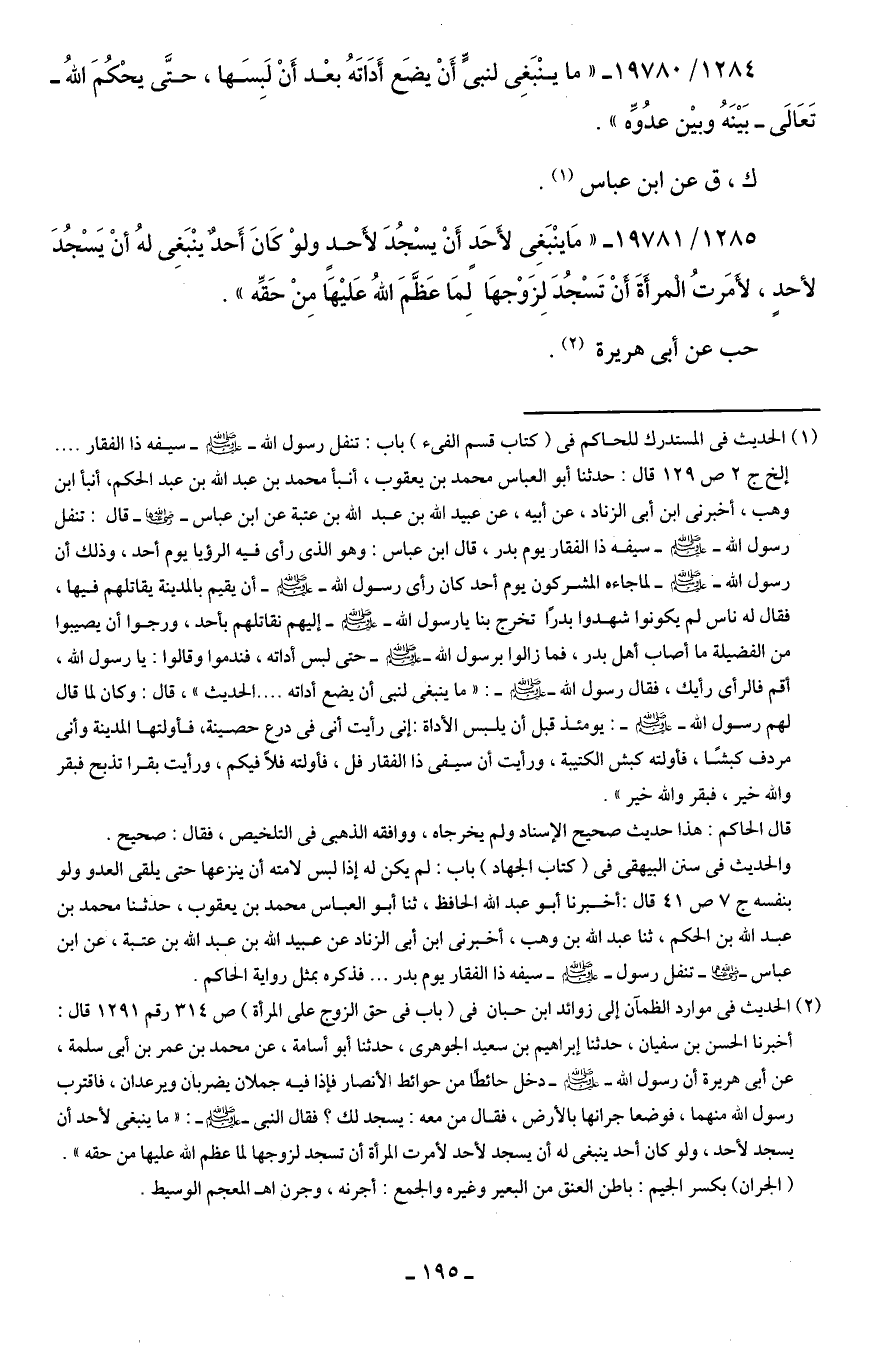 ١٢٨٤/ ١٩٧٨٠ـ « ما يـنْبَغِى لنبىٍّ أَنْ يضَع أَدَاتَهُ بعْـد أَنْ لَبِسَـها ، حـتَّى يحْكُمَ اللهُ ـ
تَعَالَى ـ بَيْنَهُ وبيْن عدُوِّه » .
ك ، ق عن ابن عباس (١) .
١٢٨٥/ ١٩٧٨١ـ « مَاينْبَغِى لأَحَدٍ أَنْ يسْجُدَ لأَحـدٍ ولوْ كَانَ أَحدٌ ينْبَغِى لهُ أنْ يَسْجُدَ
لأحدٍ ، لأَمَرتُ الْمرأَةَ أَنْ تَسْجُدَ لِزَوْجهَا لِمَا عَظَّمَ اللهُ عَلَيْهَا مِنْ حَقِّه » .
حب عن أبى هريرة (٢) .
(١) الحديث فى المستدرك للحـاكم فى ( كتاب قسم الفىء ) باب : تنفل رسول الله ـ ﷺ ـ سيـفه ذا الفقار ....
إلخ ج ٢ ص ١٢٩ قال : حدثنا أبو العباس محمد بن يعقوب ، أنبـأ محمد بن عبد الله بن عبد الحكم، أنبأ ابن
وهب ، أخبرنى ابن أبى الزناد ، عن أبيه ، عن عبيد الله بن عـبد الله بن عتبة عن ابن عباس ـ رضي الله عنهما ـ قال : تنفل
رسول الله ـ ﷺ ـ سيفـه ذا الفقار يوم بدر ، قال ابن عباس : وهو الذى رأى فـيه الرؤيا يوم أحد ، وذلك أن
رسول الله ـ ﷺ ـ لماجاءه المشـركون يوم أحد كان رأى رسـول الله ـ ﷺ ـ أن يقيم بالمدينة يقاتلهم فـيها ،
فقال له ناس لم يكونوا شهـدوا بدرًا تخرج بنا يارسول الله ـ ﷺ ـ إليهم نقاتلهم بأحد ، ورجـوا أن يصيبوا
من الفضيلة ما أصاب أهل بدر ، فما زالوا برسول الله ـ ﷺ ـ حتى لبس أداته ، فندموا وقالوا : يا رسول الله ،
أقم فالرأى رأيك ، فقال رسول الله ـ ﷺ ـ : « ما ينبغى لنبى أن يضع أداته ....الحديث » ، قال : وكان لما قال
لهم رسـول الله ـ ﷺ ـ : يومئـذ قبل أن يلـبس الأداة :إنى رأيت أنى فى درع حصـينة، فـأولتهـا المدينة وأنى
مردف كبشًـا ، فأولته كبش الكتيبة ، ورأيت أن سيـفى ذا الفقار فل ، فأولته فلاً فيكم ، ورأيت بقـرا تذبح فبقر
والله خير ، فبقر والله خير » .
قال الحاكم : هذا حديث صحيح الإسناد ولم يخرجاه ، ووافقه الذهبى فى التلخيص ، فقال : صحيح .
والحديث فى سنن البيهقى فى ( كتاب الجهاد ) باب : لم يكن له إذا لبس لامته أن ينزعها حتى يلقى العدو ولو
بنفسه ج ٧ ص ٤١ قال :أخـبرنا أبـو عبد الله الحافظ ، ثنا أبـو العبـاس محمد بن يعقوب ، حدثـنا محمد بن
عبـد الله بن الحكم ، ثنا عبد الله بن وهب ، أخـبرنى ابن أبى الزناد عن عـبيد الله بن عـبد الله بن عتـبة ، عن ابن
عباس ـ رضي الله عنهما ـ تنفل رسول ـ ﷺ ـ سيفه ذا الفقار يوم بدر ... فذكره بمثل رواية الحاكم .
(٢) الحديث فى موارد الظمآن إلى زوائد ابن حبـان فى ( باب فى حق الزوج على المرأة ) ص ٣١٤ رقم ١٢٩١ قال :
أخبرنا الحسن بن سفيان ، حدثنا إبراهيم بن سعيد الجوهرى ، حدثنا أبو أسامة ، عن محمد بن عمر بن أبى سلمة ،
عن أبى هريرة أن رسول الله ـ ﷺ ـ دخل حائطًا من حوائط الأنصار فإذا فيـه جملان يضربان ويرعدان ، فاقترب
رسول الله منهما ، فوضعا جرانها بالأرض ، فقـال من معه : يسجد لك ؟ فقال النبى ـ ﷺ ـ : « ما ينبغى لأحد أن
يسجد لأحد ، ولو كان أحد ينبغى له أن يسجد لأحد لأمرت المرأة أن تسجد لزوجها لما عظم الله عليها من حقه » .
( الجران) بكسر الجيم : باطن العنق من البعير وغيره والجمع : أجرنه ، وجرن اهـ المعجم الوسيط .
ـ ١٩٥ ـ